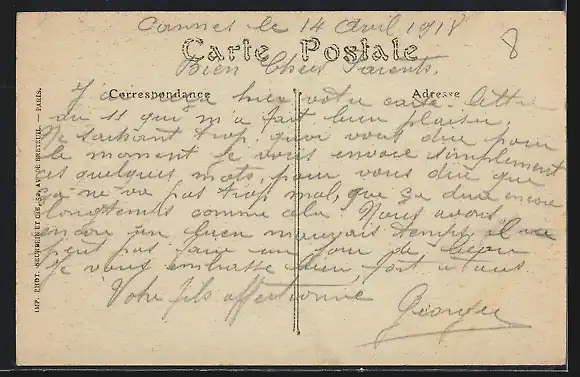 Cannes le 14 Avril 1918
8
Carte Postale
Bien Chers Parents.
Correspondance
Adresse
J'ai reçu hier votre carte-lettre
du 11 qui m'a fait bien plaisir.
Ne sachant trop quoi vous dire pour
le moment je vous envoie simplement
ces quelques mots, pour vous dire que
ça ne va pas trop mal, que ça dure encore
longtemps comme cela. Nous avons
encore un bien mauvais temps, il ne
peut pas faire un jour de beau
Je vous embrasse bien fort à tous.
Votre fils affectionné
Georges
IMP. PHOT. NEURDEIN ET CIE, 52, AV. DE BRETEUIL. — PARIS.